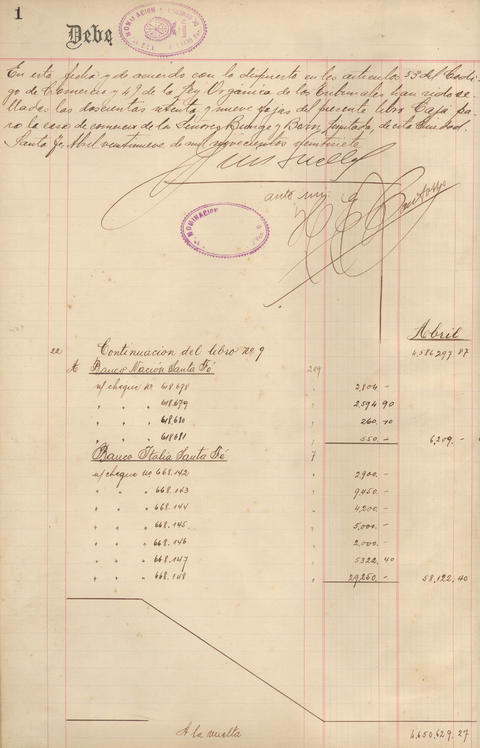 1
Debe
En esta fecha y de acuerdo con lo dispuesto en los articulos 53 del Codi-
go de Comercio y 49 de la Ley Orgánica de los Tribunales han sido se-
lladas las doscientas setenta y nueve fojas del presente libro Caja pa-
ra la casa de comercio de los Señores Bunge y Born Limitada, de esta Ciudad.
Santa Fe Abril veintinueve de mil novecientos veintisiete
ante mi
NOMINACION
Abril
22 Continuacion del libro No 9 4,586,297 87
A Banco Nación Santa Fé 219
n/ cheque No 618.678 " 2,804 -
" " " 618.679 " 2,594 90
" " " 618.680 " 260.10
" " " 618.681 " 550.- 6,209.-
Banco Italia Santa Fé 7
n/ cheque No 668.142 " 2,900.-
" " " 668.143 " 9,450.-
" " " 668.144 " 4,200.-
" " " 668.145 " 5,000.-
" " " 668.146 " 2,000.-
" " " 668.147 " 5,322.40
" " " 668.148 " 29,250.- 58,122.40
A la vuelta 4,650,629.27